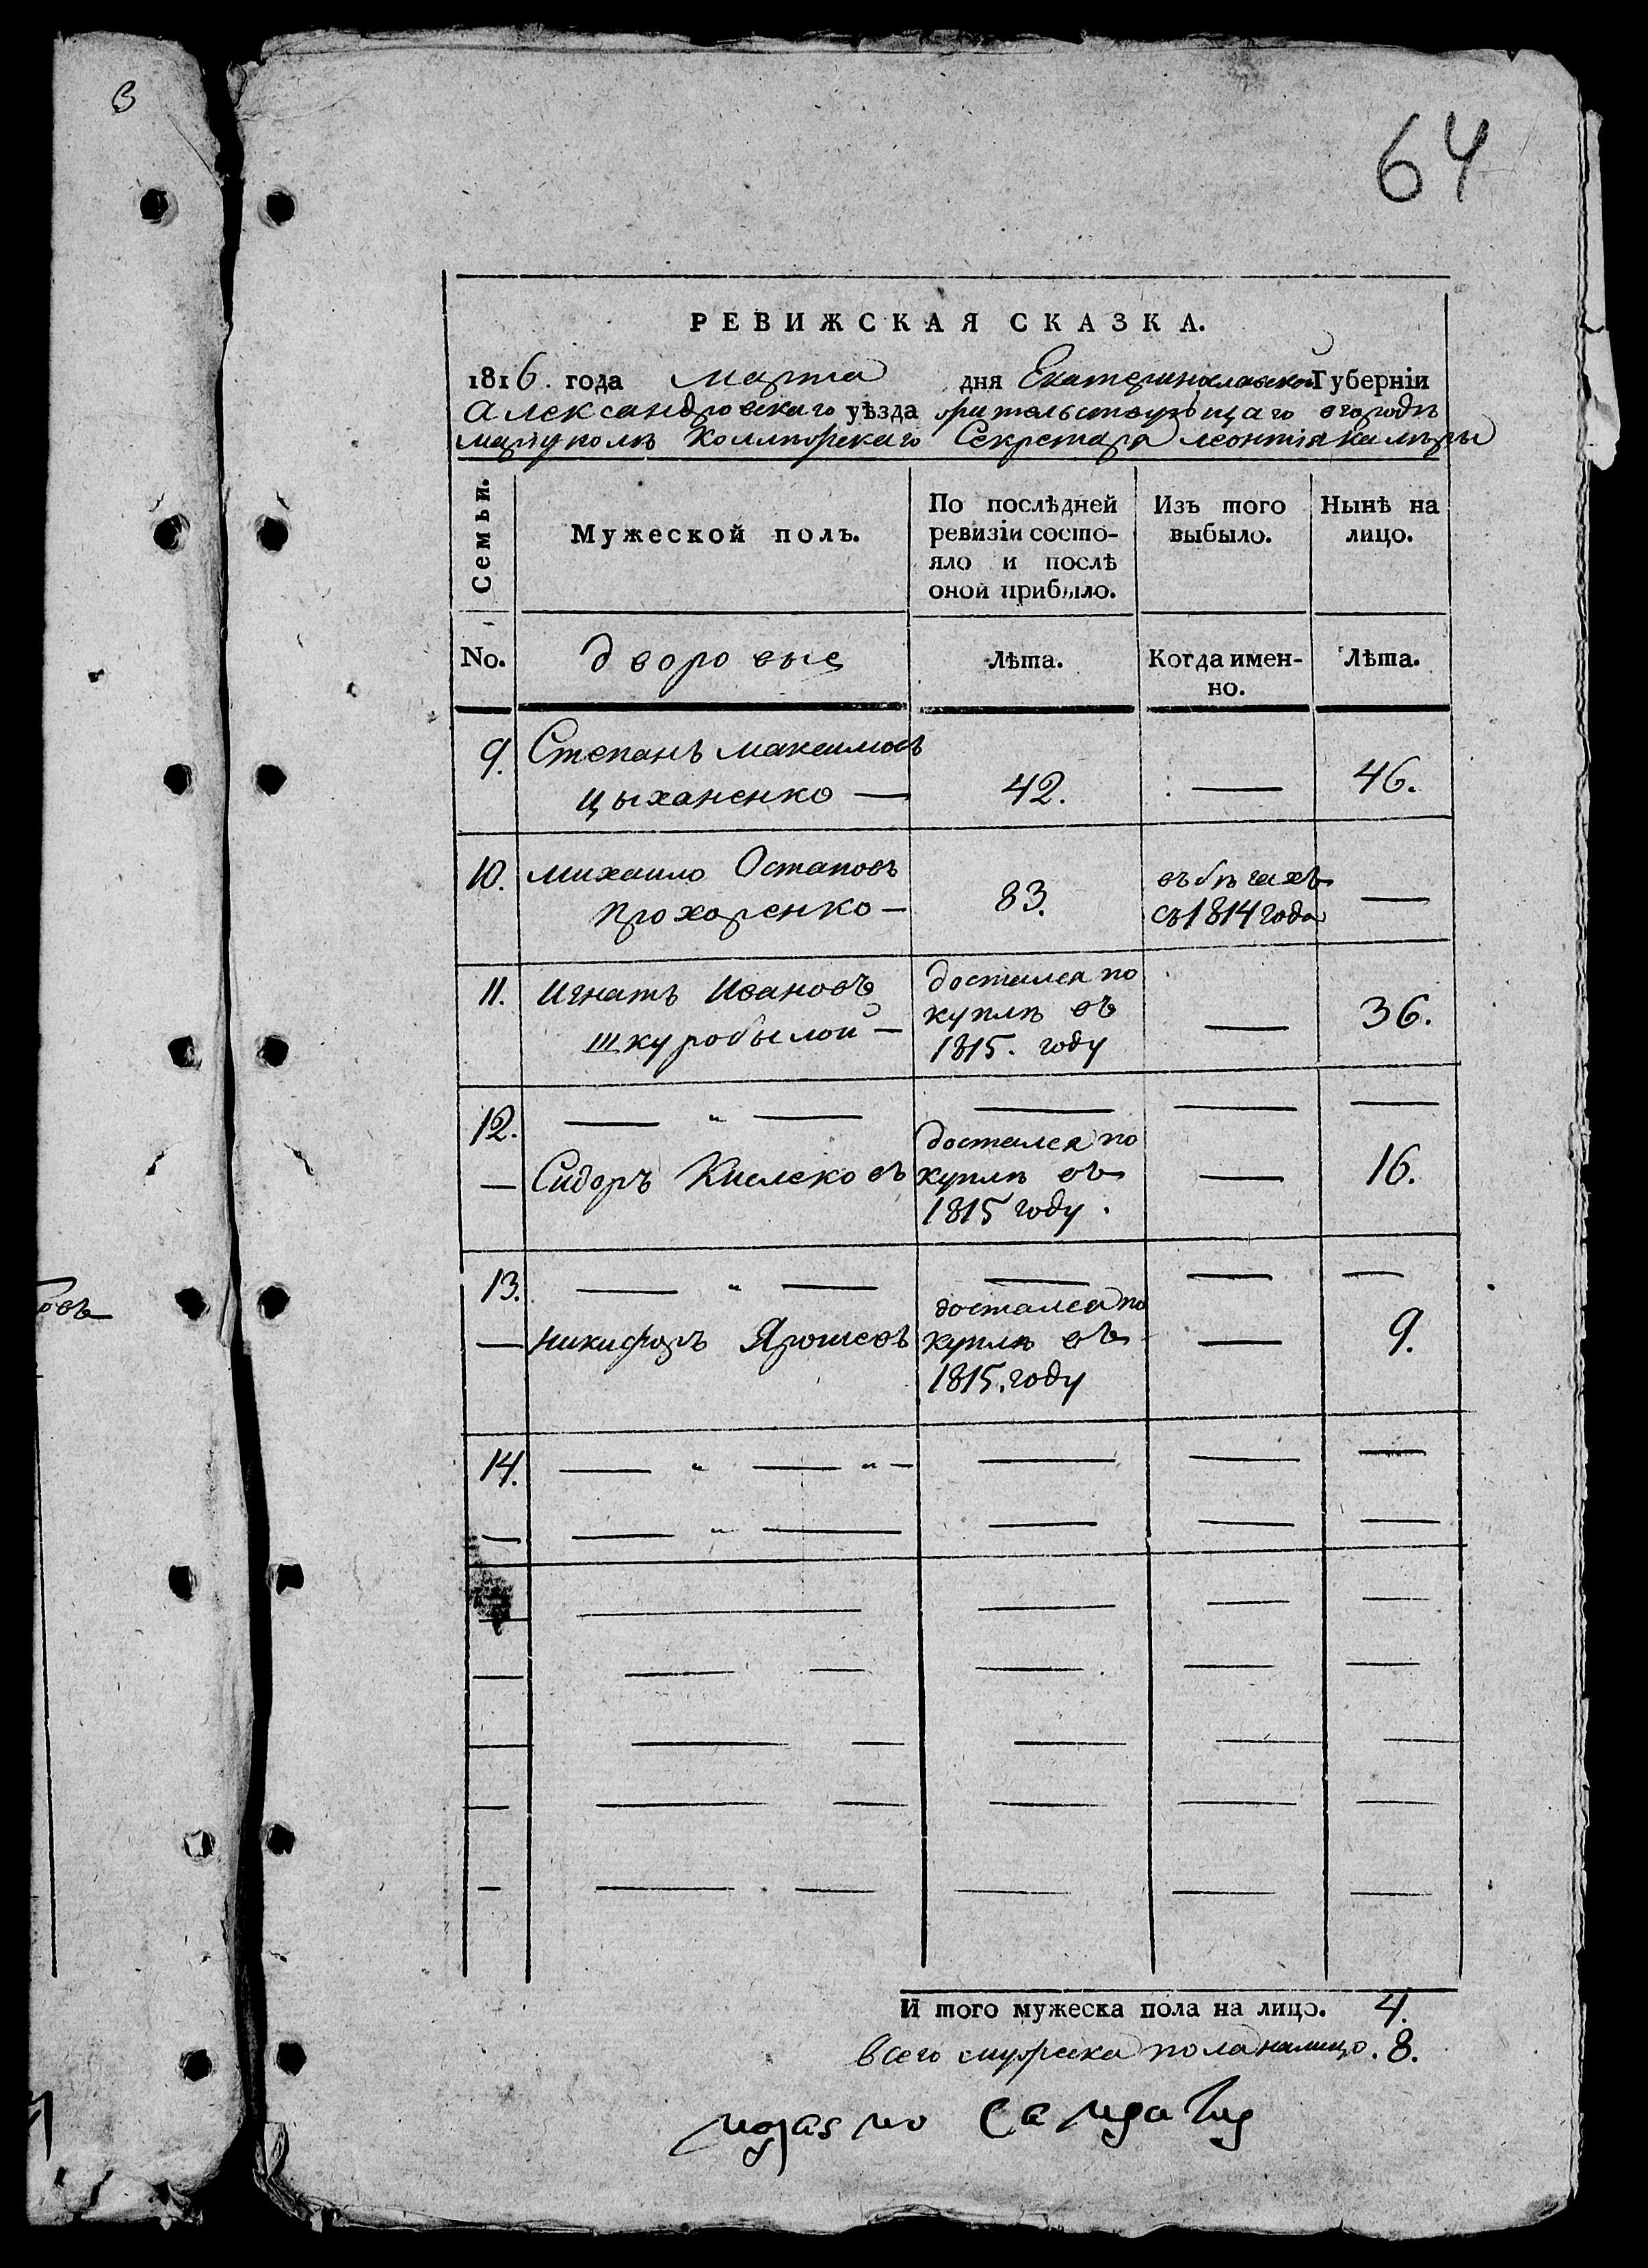 64
РЕВИЖСКАЯ СКАЗКА.
1816. года марта дня Екатеринославской Губерніи
Александровскаго уѣзда жительствующаго вгородѣ
мариуполѣ Коллежскаго Секретаря леонтія
Семьи.
Мужеской полъ.
По послѣдней ревизіи состо-
яло и послѣ
оной прибыло.
Изъ того
выбыло.
Нынѣ на
лицо.
No.
дворовые
Лѣта.
Когда имен-
но.
Лѣта.
9. Степанъ максимовъ
цыханенко — 42. — 46.
10. михаило Остаповъ
прохоренко — 83. въбѣгахъ
съ1814года —
11. Игнатъ Ивановъ
шкуробылой — достался по
куплѣ въ
1815. году — 36.
12. — „ — — — —
— Сидоръ достался по
куплѣ въ
1815 году. — 16.
13. — „ — — — —
— никифоръ достался по
куплѣ въ
1815. году — 9.
14. — „ — „ — — — —
— — „ — — — —
И того мужеска пола на лицо. 4.
всего мужеска пола налицо. 8.
овъ